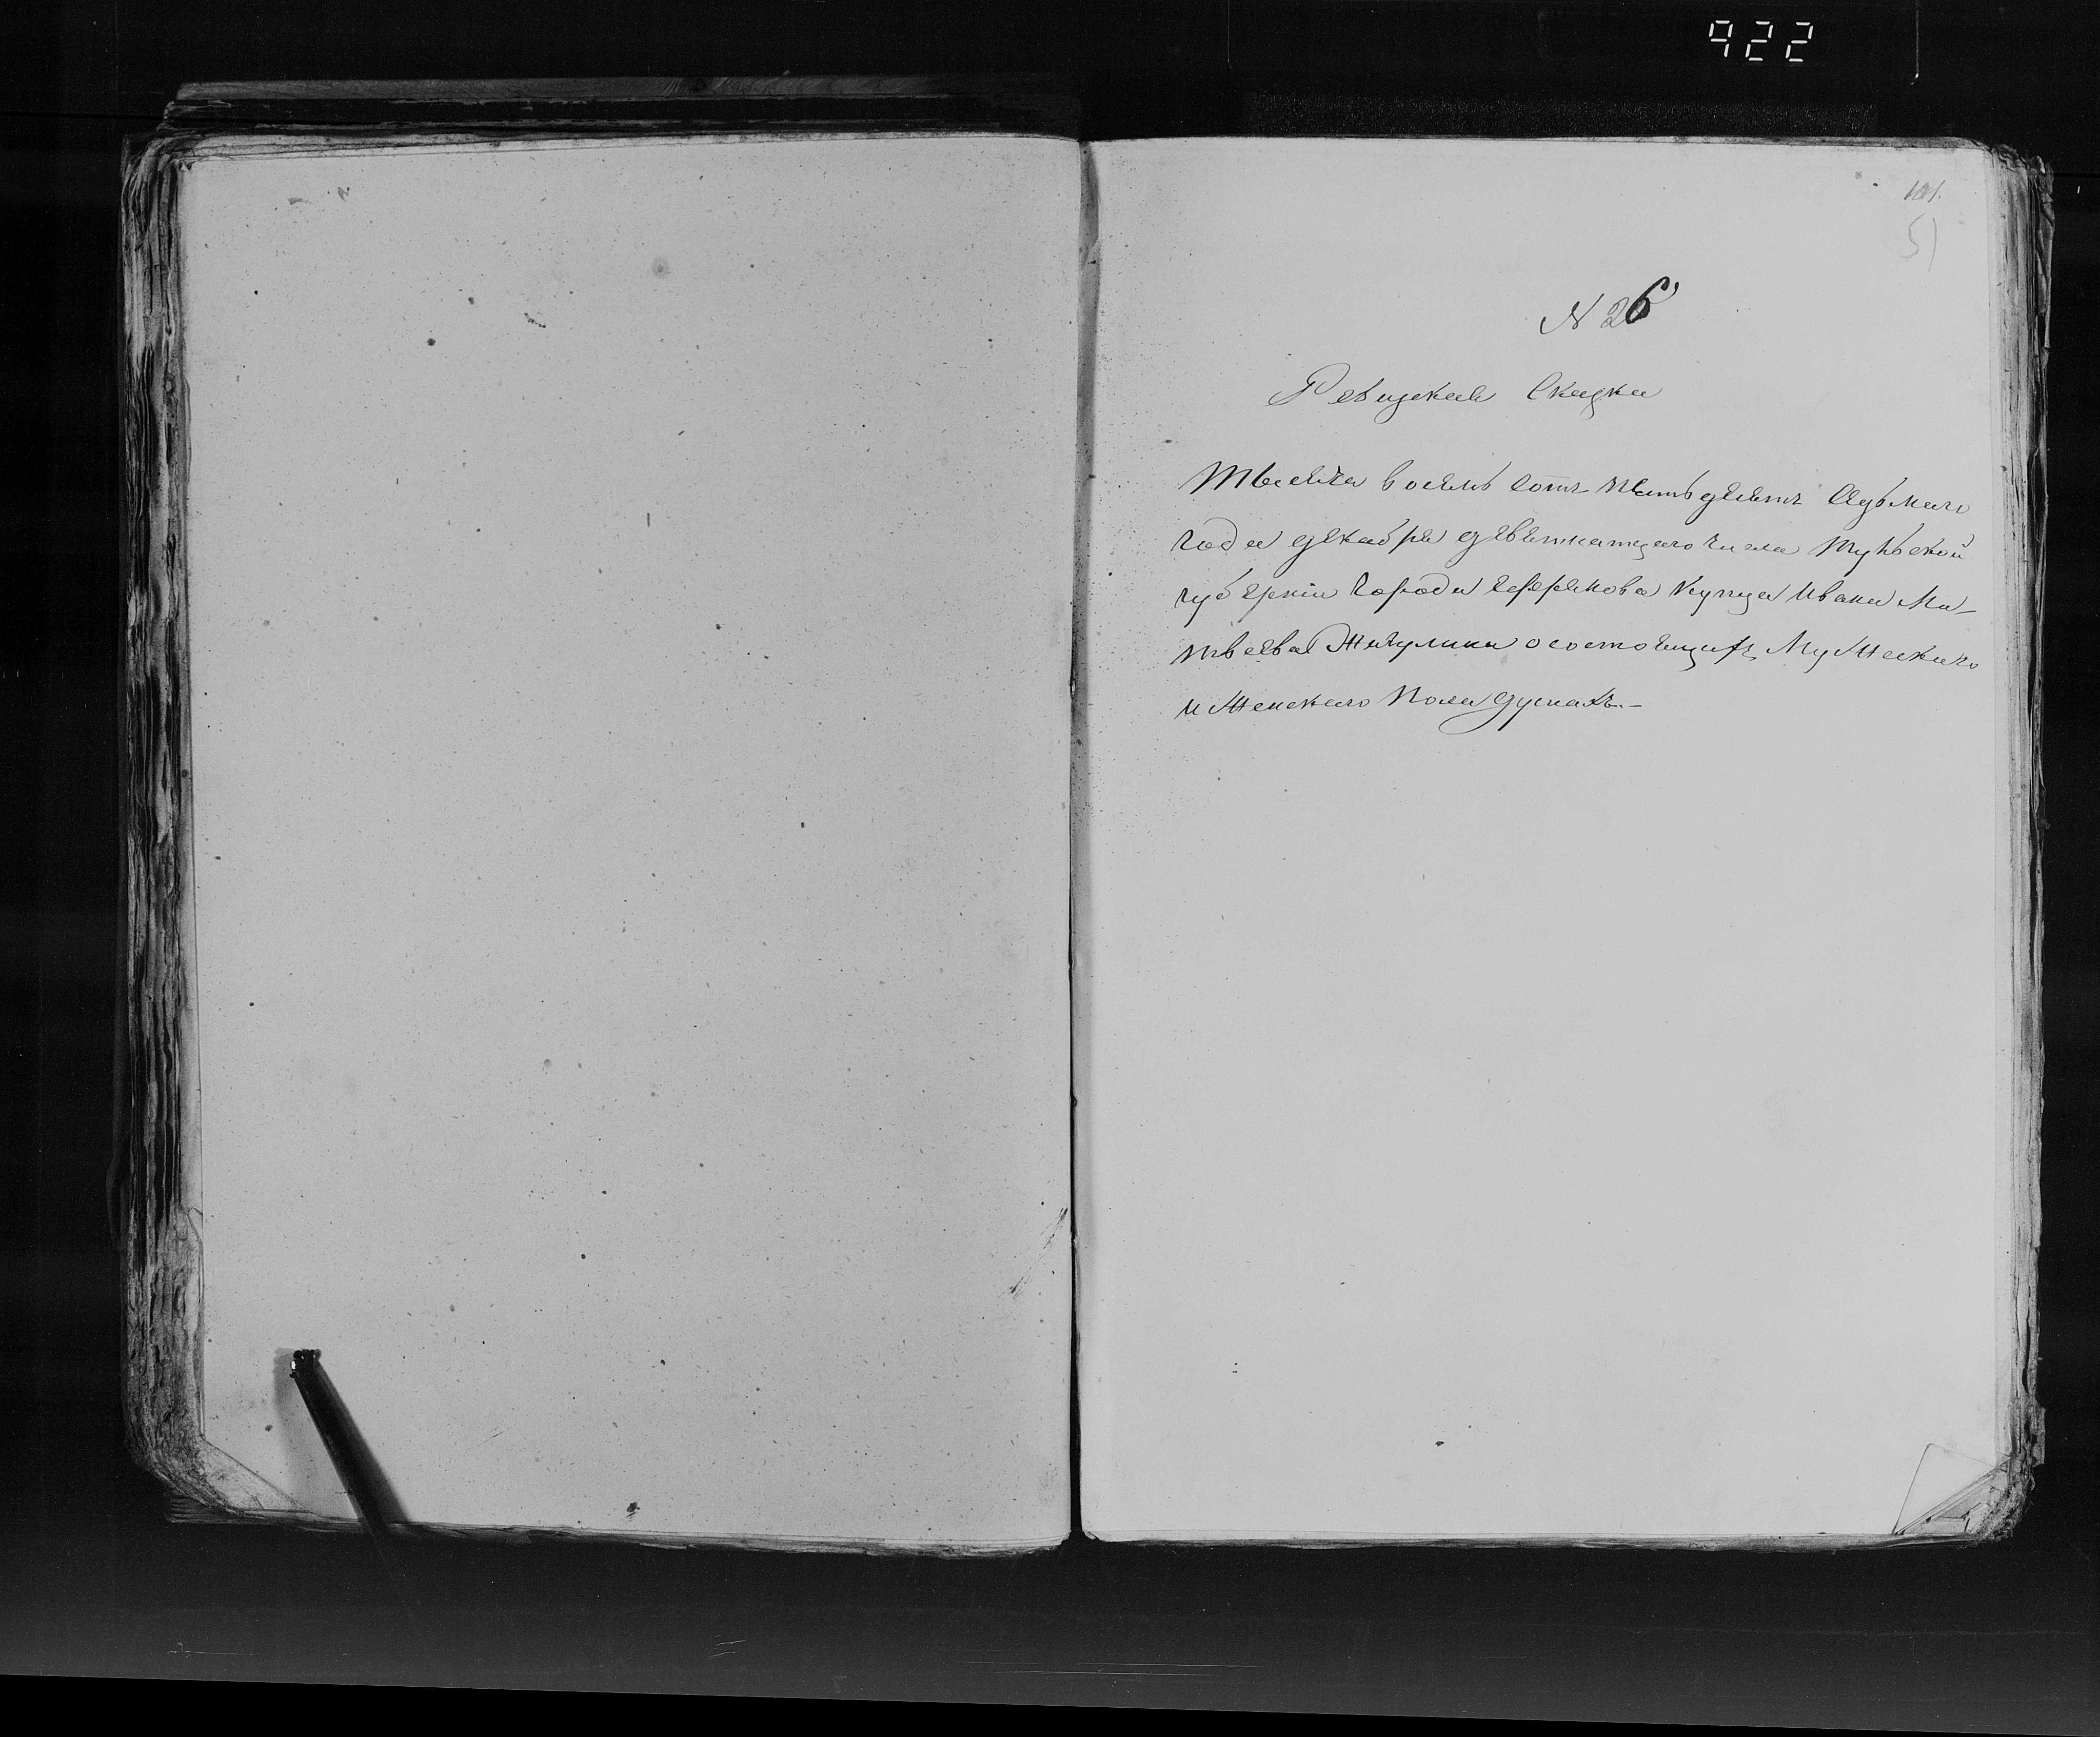 922
101.
51
N 26
Ревизкая Сказка
Тысеча восемь сотъ пять десетъ седьмаго
года декабря деветнатцаго числа Тульской
губернiи города Ефремова купца Ивана Ма-
твеева Жигулина осостоящихъ Мужескаго
и Женскаго пола душахъ.-